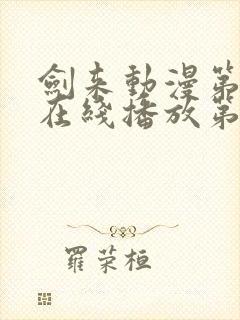 劍來動漫第
在綫播放第
羅荣桓